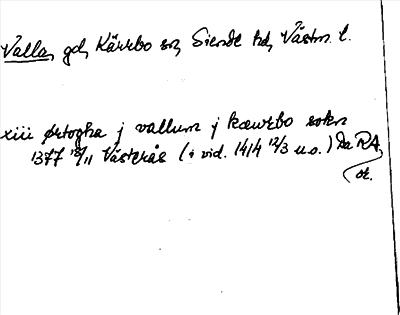 Valla, gd, Kärrbo sn, Siende hd, Västm. l.
xiii ørtogha j vallum j kærrbo sokn
1377 12/11 Västerås (i vid. 1414 12/3 u.o.) Da RA,
or.